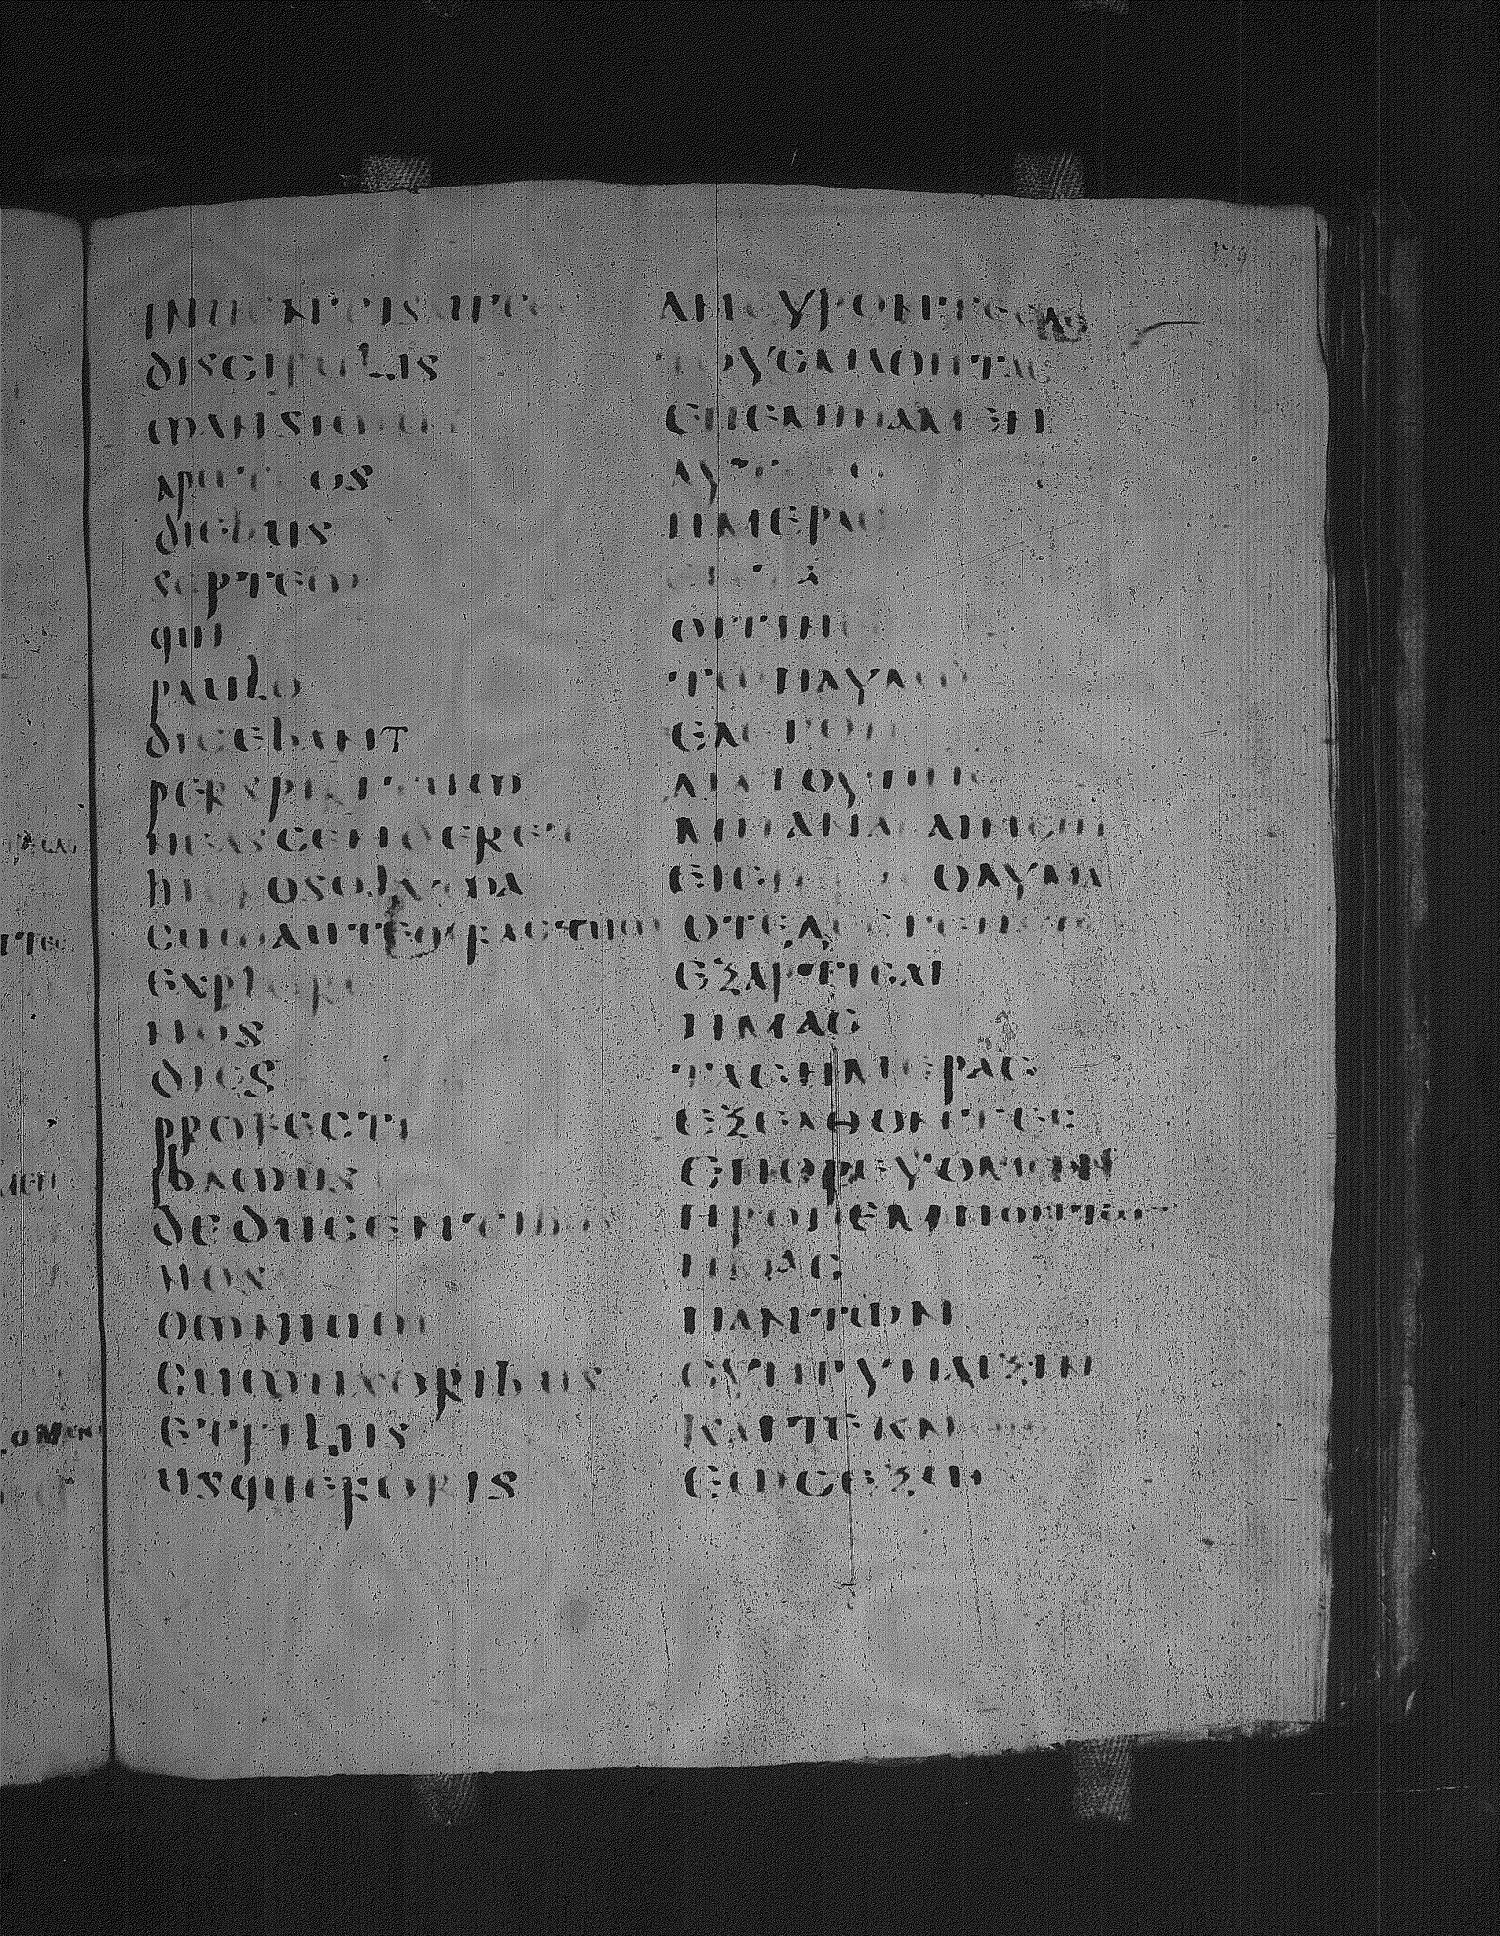 INUENTIS AUTE
discipulis
mansimus
apud eos
diebus
septem
qui
paulo
dicebant
perspiritum
neascenderet
hierosolyma
cumautemfactum
explere
nos
dies
profecti
ibamus
deducentibus
nos
omnium
cumuxoribus
etfiliis
usqueforis
ΑΝΕΥΡΟΝΤΕϹΔΕ
ΤΟΥϹΜΑΘΗΤΑϹ
ΕΠΕΜΙΝΑΜΕΝ
ΗΜΕΡΑϹ
ΕΠΤΑ
ΟΙΤΙΝΕϹ
ΤΩΠΑΥΛΩ
ΕΛΕΓΟΝ
ΔΙΑΤΟΥΠΝϹ
ΜΗΑΝΑΒΑΙΝΕΙΝ
ΕΙϹΙΕΡΟϹΟΛΥΜΑ
ΟΤΕΔΕΕΓΕΝΕΤΟ
ΕΞΑΡΤΙϹΑΙ
ΗΜΑϹ
ΤΑϹΗΜΕΡΑϹ
ΕΞΕΛΘΟΝΤΕϹ
ΕΠΟΡΕΥΟΜΕΘΑ
ΠΡΟΠΕΜΠΟΝΤΩΝ
ΗΜΑϹ
ΠΑΝΤΩΝ
ϹΥΝΓΥΝΑΙΞΙΝ
ΚΑΙΤΕΚΝΟΙϹ
ΕΩϹΕΞΩ